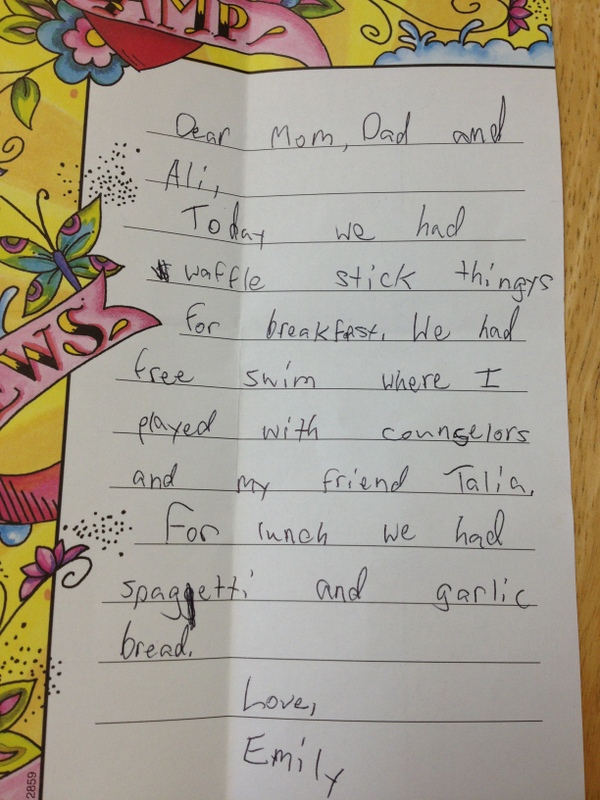 AMP
Dear Mom, Dad and
Ali,
Today we had
waffle stick thingys
for breakfast. We had
free swim where I
played with counselors
and my friend Talia.
For lunch we had
spaggetti and garlic
bread.
Love,
Emily
EWS
2859